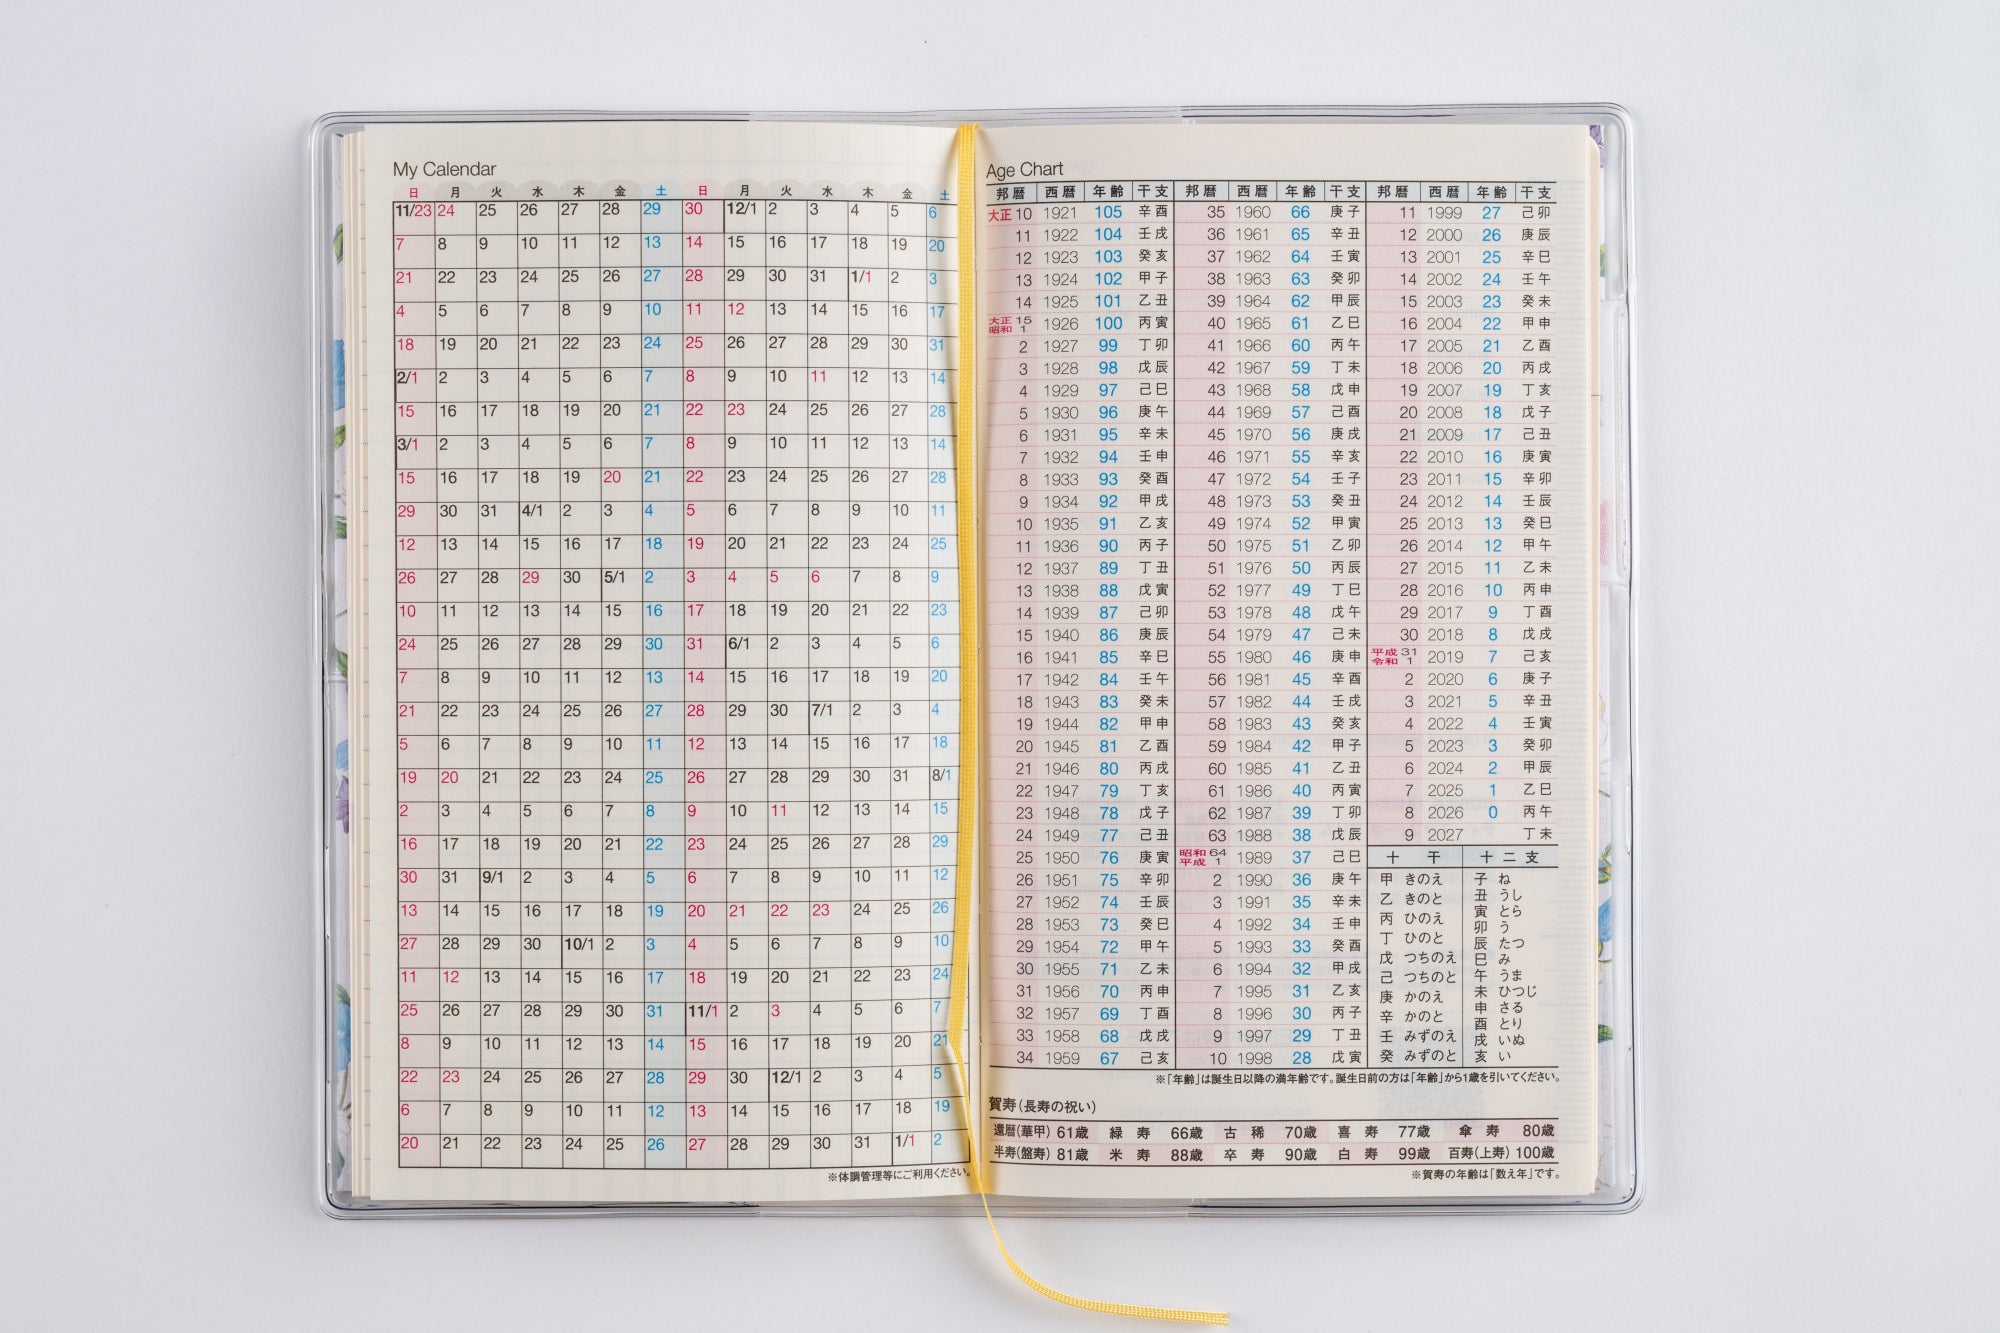 My Calendar
日 月 火 水 木 金 土 日 月 火 水 木 金 土
11/23 24 25 26 27 28 29 30 12/1 2 3 4 5 6
7 8 9 10 11 12 13 14 15 16 17 18 19 20
21 22 23 24 25 26 27 28 29 30 31 1/1 2 3
4 5 6 7 8 9 10 11 12 13 14 15 16 17
18 19 20 21 22 23 24 25 26 27 28 29 30 31
2/1 2 3 4 5 6 7 8 9 10 11 12 13 14
15 16 17 18 19 20 21 22 23 24 25 26 27 28
3/1 2 3 4 5 6 7 8 9 10 11 12 13 14
15 16 17 18 19 20 21 22 23 24 25 26 27 28
29 30 31 4/1 2 3 4 5 6 7 8 9 10 11
12 13 14 15 16 17 18 19 20 21 22 23 24 25
26 27 28 29 30 5/1 2 3 4 5 6 7 8 9
10 11 12 13 14 15 16 17 18 19 20 21 22 23
24 25 26 27 28 29 30 31 6/1 2 3 4 5 6
7 8 9 10 11 12 13 14 15 16 17 18 19 20
21 22 23 24 25 26 27 28 29 30 7/1 2 3 4
5 6 7 8 9 10 11 12 13 14 15 16 17 18
19 20 21 22 23 24 25 26 27 28 29 30 31 8/1
2 3 4 5 6 7 8 9 10 11 12 13 14 15
16 17 18 19 20 21 22 23 24 25 26 27 28 29
30 31 9/1 2 3 4 5 6 7 8 9 10 11 12
13 14 15 16 17 18 19 20 21 22 23 24 25 26
27 28 29 30 10/1 2 3 4 5 6 7 8 9 10
11 12 13 14 15 16 17 18 19 20 21 22 23 24
25 26 27 28 29 30 31 11/1 2 3 4 5 6 7
8 9 10 11 12 13 14 15 16 17 18 19 20 21
22 23 24 25 26 27 28 29 30 12/1 2 3 4 5
6 7 8 9 10 11 12 13 14 15 16 17 18 19
20 21 22 23 24 25 26 27 28 29 30 31 1/1 2
※体調管理等にご利用ください。
Age Chart
邦暦 西暦 年齢 干支 邦暦 西暦 年齢 干支 邦暦 西暦 年齢 干支
大正10 1921 105 辛酉 35 1960 66 庚子 11 1999 27 己卯
11 1922 104 壬戌 36 1961 65 辛丑 12 2000 26 庚辰
12 1923 103 癸亥 37 1962 64 壬寅 13 2001 25 辛巳
13 1924 102 甲子 38 1963 63 癸卯 14 2002 24 壬午
14 1925 101 乙丑 39 1964 62 甲辰 15 2003 23 癸未
大正15 昭和1 1926 100 丙寅 40 1965 61 乙巳 16 2004 22 甲申
2 1927 99 丁卯 41 1966 60 丙午 17 2005 21 乙酉
3 1928 98 戊辰 42 1967 59 丁未 18 2006 20 丙戌
4 1929 97 己巳 43 1968 58 戊申 19 2007 19 丁亥
5 1930 96 庚午 44 1969 57 己酉 20 2008 18 戊子
6 1931 95 辛未 45 1970 56 庚戌 21 2009 17 己丑
7 1932 94 壬申 46 1971 55 辛亥 22 2010 16 庚寅
8 1933 93 癸酉 47 1972 54 壬子 23 2011 15 辛卯
9 1934 92 甲戌 48 1973 53 癸丑 24 2012 14 壬辰
10 1935 91 乙亥 49 1974 52 甲寅 25 2013 13 癸巳
11 1936 90 丙子 50 1975 51 乙卯 26 2014 12 甲午
12 1937 89 丁丑 51 1976 50 丙辰 27 2015 11 乙未
13 1938 88 戊寅 52 1977 49 丁巳 28 2016 10 丙申
14 1939 87 己卯 53 1978 48 戊午 29 2017 9 丁酉
15 1940 86 庚辰 54 1979 47 己未 30 2018 8 戊戌
16 1941 85 辛巳 55 1980 46 庚申 平成31 令和1 2019 7 己亥
17 1942 84 壬午 56 1981 45 辛酉 2 2020 6 庚子
18 1943 83 癸未 57 1982 44 壬戌 3 2021 5 辛丑
19 1944 82 甲申 58 1983 43 癸亥 4 2022 4 壬寅
20 1945 81 乙酉 59 1984 42 甲子 5 2023 3 癸卯
21 1946 80 丙戌 60 1985 41 乙丑 6 2024 2 甲辰
22 1947 79 丁亥 61 1986 40 丙寅 7 2025 1 乙巳
23 1948 78 戊子 62 1987 39 丁卯 8 2026 0 丙午
24 1949 77 己丑 63 1988 38 戊辰 9 2027 丁未
25 1950 76 庚寅 昭和64 平成1 1989 37 己巳
26 1951 75 辛卯 2 1990 36 庚午
27 1952 74 壬辰 3 1991 35 辛未
28 1953 73 癸巳 4 1992 34 壬申
29 1954 72 甲午 5 1993 33 癸酉
30 1955 71 乙未 6 1994 32 甲戌
31 1956 70 丙申 7 1995 31 乙亥
32 1957 69 丁酉 8 1996 30 丙子
33 1958 68 戊戌 9 1997 29 丁丑
34 1959 67 己亥 10 1998 28 戊寅
十干
甲 きのえ
乙 きのと
丙 ひのえ
丁 ひのと
戊 つちのえ
己 つちのと
庚 かのえ
辛 かのと
壬 みずのえ
癸 みずのと
十二支
子 ね
丑 うし
寅 とら
卯 う
辰 たつ
巳 み
午 うま
未 ひつじ
申 さる
酉 とり
戌 いぬ
亥 い
※「年齢」は誕生日以降の満年齢です。誕生日前の方は「年齢」から1歳を引いてください。
賀寿(長寿の祝い)
還暦(華甲) 61歳 緑寿 66歳 古稀 70歳 喜寿 77歳 傘寿 80歳
半寿(盤寿) 81歳 米寿 88歳 卒寿 90歳 白寿 99歳 百寿(上寿) 100歳
※賀寿の年齢は「数え年」です。